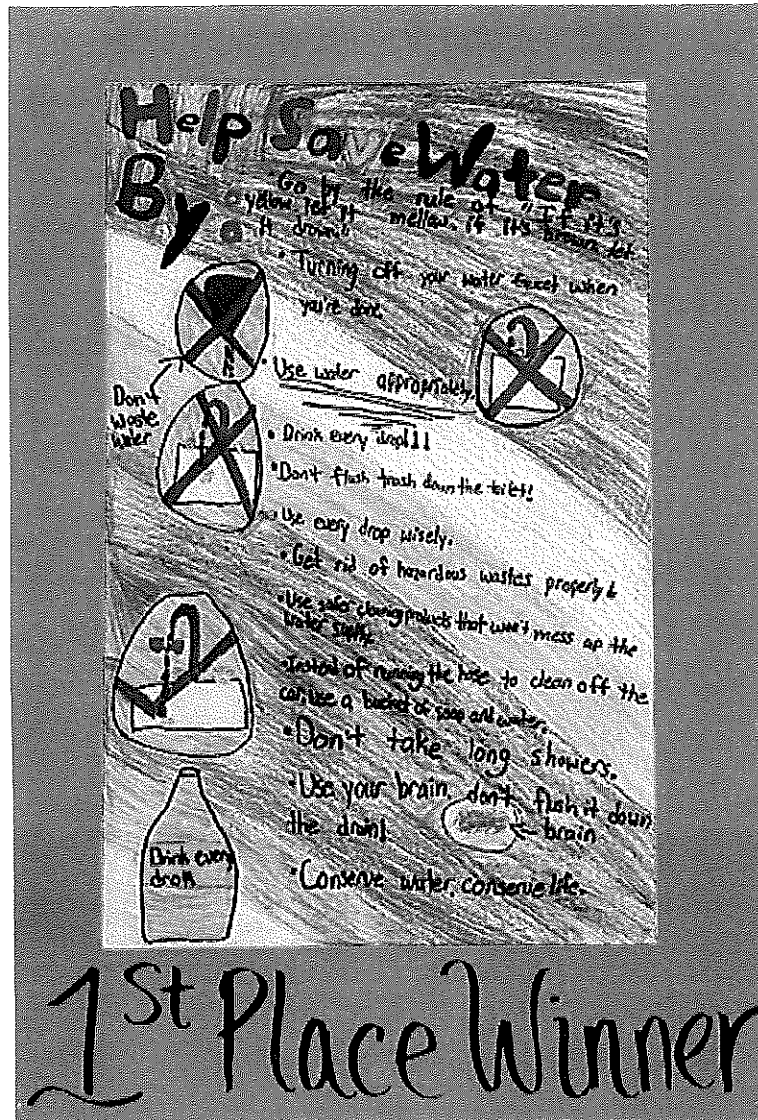 Help Save Water
By
• Go by the rule of "If it's
yellow let it mellow. if it's brown let
it drown."
• Turning off your water faucet when
you're done.
• Use water appropriately.
Don't
Waste
Water
• Drink every drop!!!
• Don't flush trash down the toilet!
• Use every drop wisely.
• Get rid of hazardous wastes properly
• Use safer cleaning products that won't mess up the
water supply.
• Instead of running the hose to clean off the
car, use a bucket of soap and water.
• Don't take long showers.
• Use your brain, don't flush it down
the drain!
brain
Drink every
drop!
• Conserve water, conserve life.
1st Place Winner